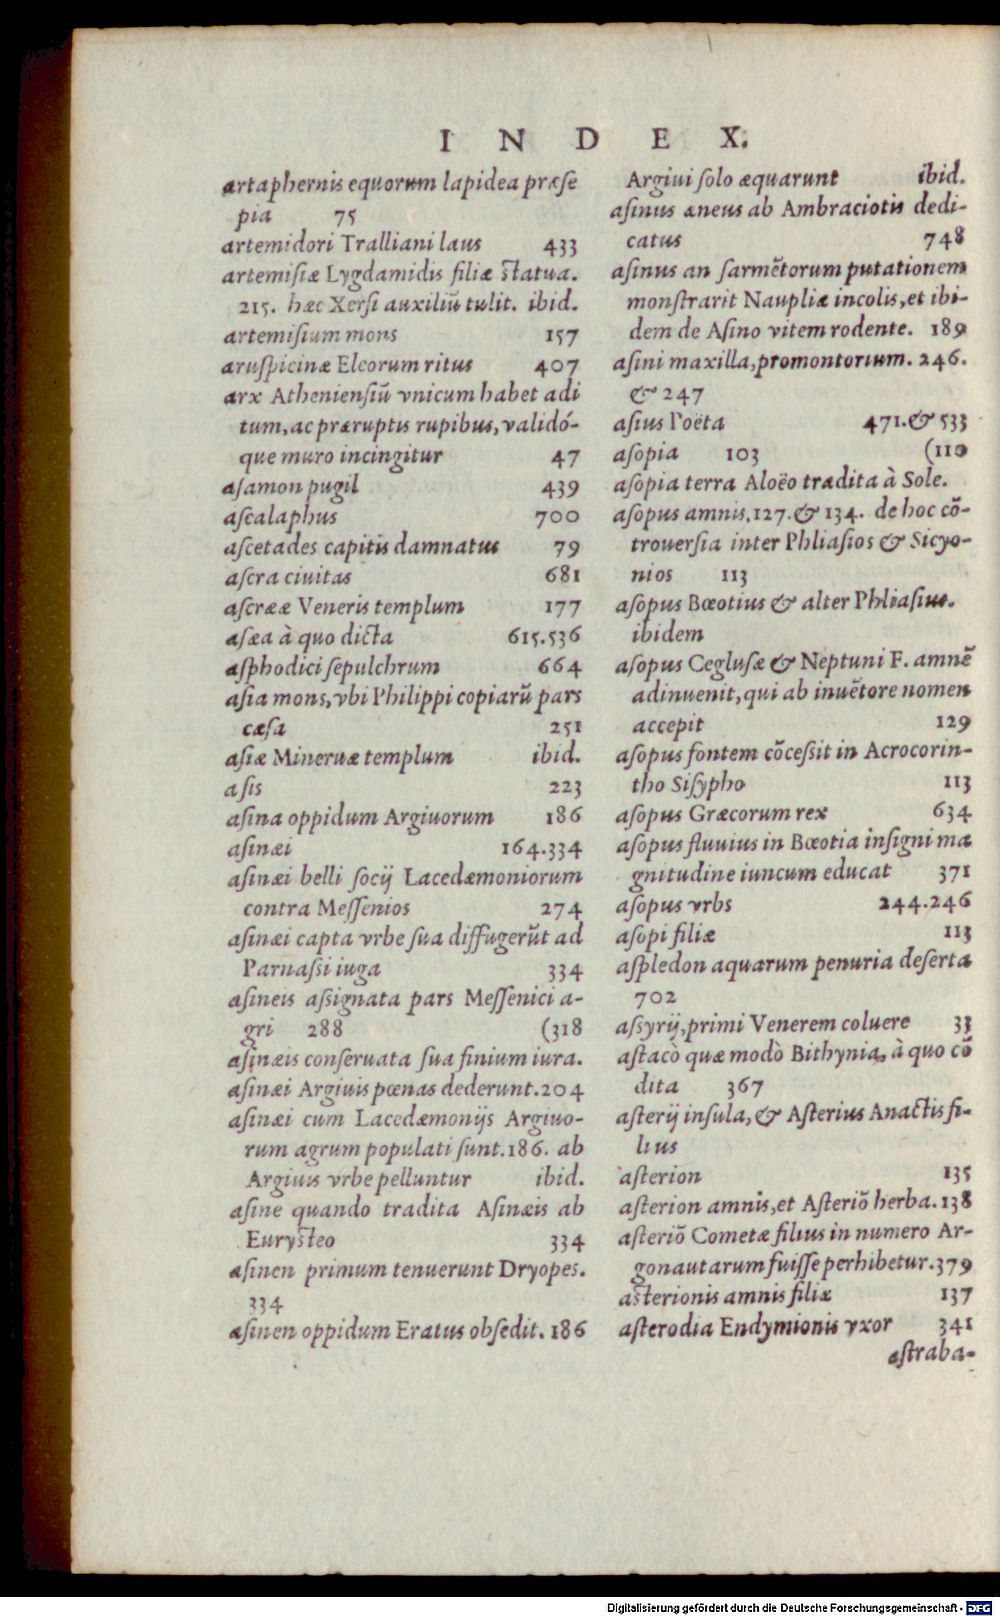 I N D E X.
artaphernis equorum lapidea præse
pia 75
artemidori Tralliani laus 433
artemiſiæ Lygdamidis filiæ ſtatua.
215. hæc Xerſi auxiliũ tulit. ibid.
artemiſium mons 157
aruſpicinæ Eleorum ritus 407
arx Athenienſiũ vnicum habet adi
tum, ac præruptis rupibus, validó-
que muro incingitur 47
aſamon pugil 439
aſcalaphus 700
aſcetades capitis damnatus 79
aſcra ciuitas 681
aſcrææ Veneris templum 177
aſæa à quo dicta 615.536
aſphodici ſepulchrum 664
aſia mons, vbi Philippi copiarũ pars
cæſa 251
aſiæ Mineruæ templum ibid.
aſis 223
aſina oppidum Argiuorum 186
aſinæi 164.334
aſinæi belli ſocij Lacedæmoniorum
contra Meſſenios 274
aſinæi capta vrbe ſua diffugerũt ad
Parnaſsi iuga 334
aſineis aſsignata pars Meſſenici a-
gri 288 (318
aſinæis conſeruata ſua finium iura.
aſinæi Argiuis pœnas dederunt.204
aſinæi cum Lacedæmonijs Argiuo-
rum agrum populati ſunt.186. ab
Argiuis vrbe pelluntur ibid.
aſine quando tradita Aſinæis ab
Euryſteo 334
aſinen primum tenuerunt Dryopes.
334
aſinen oppidum Eratus obſedit. 186
Argiui ſolo æquarunt ibid.
aſinus æneus ab Ambraciotis dedi-
catus 748
aſinus an ſarmẽtorum putationem
monſtrarit Naupliæ incolis, et ibi-
dem de Aſino vitem rodente. 189
aſini maxilla, promontorium. 246.
& 247
aſius Poëta 471.& 533
aſopia 103 (110
aſopia terra Aloëo tradita à Sole.
aſopus amnis.127.& 134. de hoc cõ-
trouerſia inter Phliaſios & Sicyo-
nios 113
aſopus Bœotius & alter Phliaſius.
ibidem
aſopus Cegluſæ & Neptuni F. amnẽ
adinuenit, qui ab inuẽtore nomen
accepit 129
aſopus fontem cõceſsit in Acrocorin-
tho Siſypho 113
aſopus Græcorum rex 634
aſopus fluuius in Bœotia inſigni ma
gnitudine iuncum educat 371
aſopus vrbs 244.246
aſopi filiæ 113
aſpledon aquarum penuria deſerta
702
aſsyrij, primi Venerem coluere 33
aſtacò quæ modò Bithynia, à quo cõ
dita 367
aſterij inſula, & Aſterius Anactis fi-
lius
aſterion 135
aſterion amnis, et Aſteriõ herba. 138
aſteriõ Cometæ filius in numero Ar-
gonautarum fuiſſe perhibetur.379
aſterionis amnis filiæ 137
aſterodia Endymionis vxor 341
aſtraba-
Digitalisierung gefördert durch die Deutsche Forschungsgemeinschaft - DFG